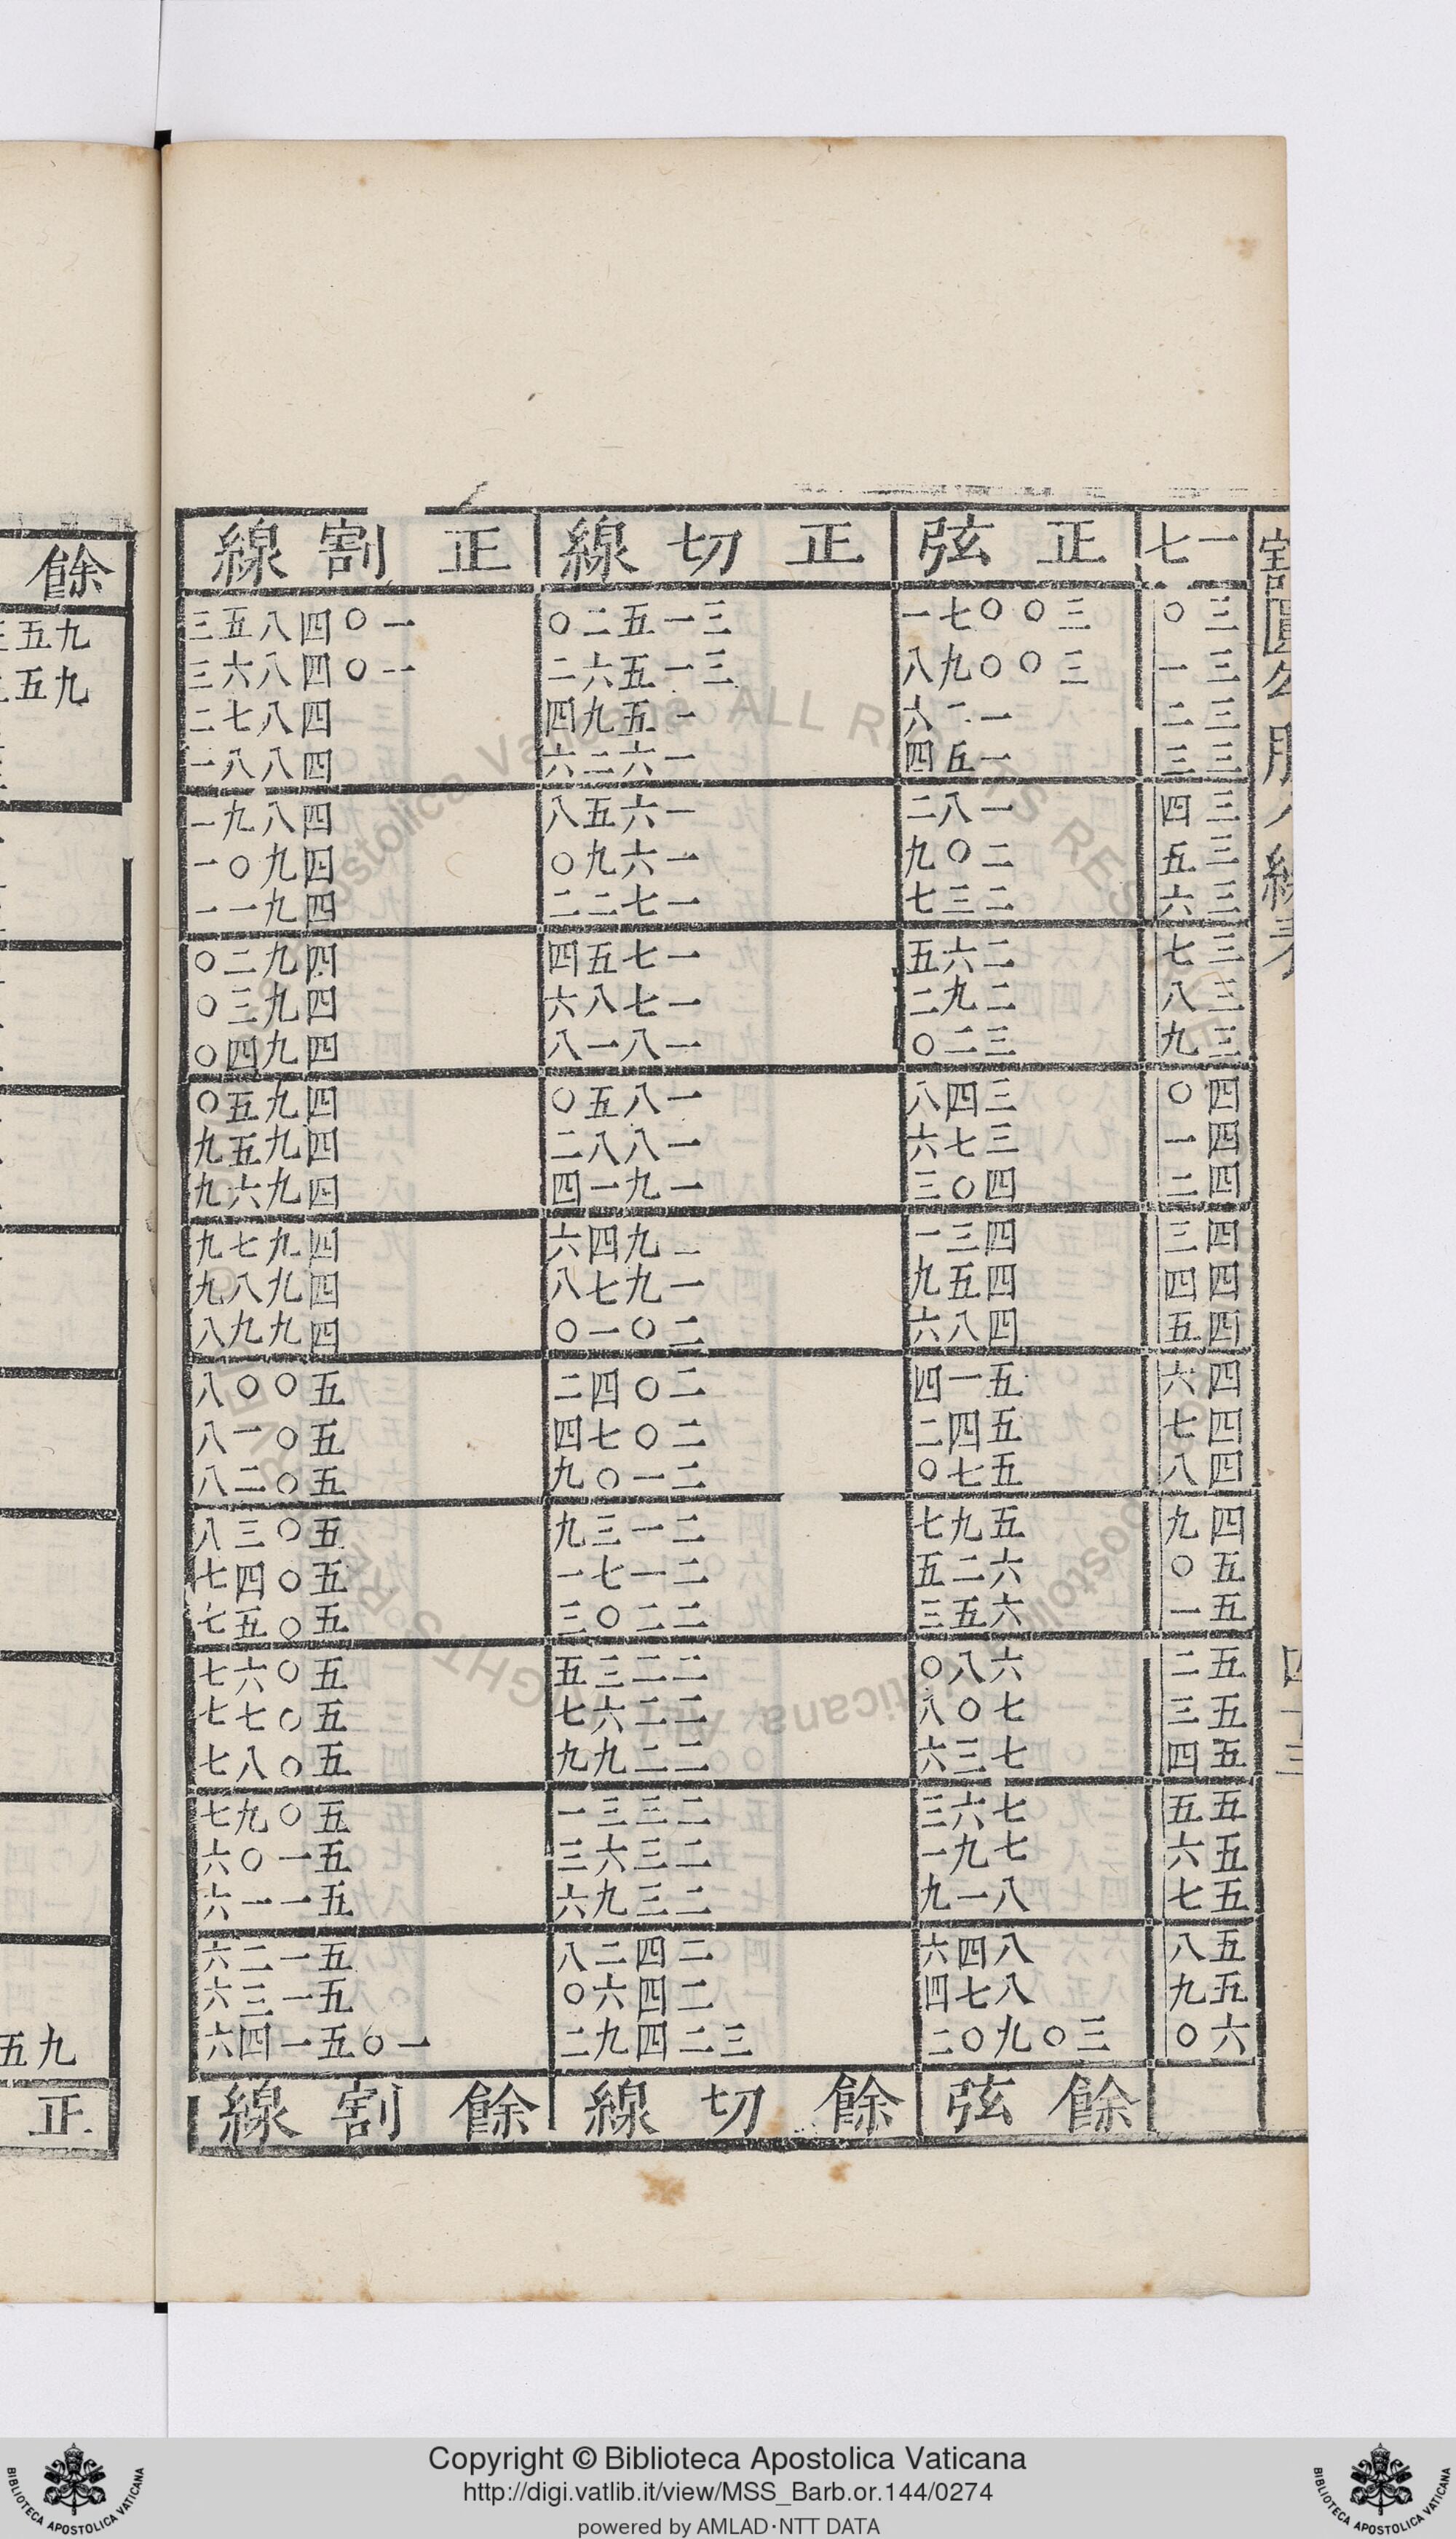 割圓
四十三
一七 正弦 正切線 正割線
三〇 三〇〇七一 三一五二〇 一〇四八五三
三一 三〇〇九八 三一五六二 一〇四八六三
三二 一二六 一五九四 四八七二
三三 一五四 一六二六 四八八一
三四 一八二 一六五八 四八九一
三五 二〇九 一六九〇 四九〇一
三六 二三七 一七二二 四九一一
三七 二六五 一七五四 四九二〇
三八 二九二 一七八六 四九三〇
三九 三二〇 一八一八 四九四〇
四〇 三四八 一八五〇 四九五〇
四一 三七六 一八八二 四九五九
四二 四〇三 一九一四 四九六九
四三 四三一 一九四六 四九七九
四四 四五九 一九七八 四九八九
四五 四八六 二〇一〇 四九九八
四六 五一四 二〇四二 五〇〇八
四七 五四二 二〇七四 五〇一八
四八 五七〇 二一〇九 五〇二八
四九 五九七 二一三九 五〇三八
五〇 六二五 二一七一 五〇四七
五一 六五三 二二〇三 五〇五七
五二 六八〇 二二三五 五〇六七
五三 七〇八 二二六七 五〇七七
五四 七三六 二二九九 五〇八七
五五 七六三 二三三一 五〇九七
五六 七九一 二三六三 五一〇六
五七 八一九 二三九六 五一一六
五八 八四六 二四二八 五一二六
五九 八七四 二四六〇 五一三六
六〇 三〇九〇二 三二四九二 一〇五一四六
餘弦 餘切線 餘割線
餘
九五
九五
九五
正
Copyright © Biblioteca Apostolica Vaticana
http://digi.vatlib.it/view/MSS_Barb.or.144/0274
powered by AMLAD·NTT DATA
BIBLIOTECA APOSTOLICA VATICANA
BIBLIOTECA APOSTOLICA VATICANA